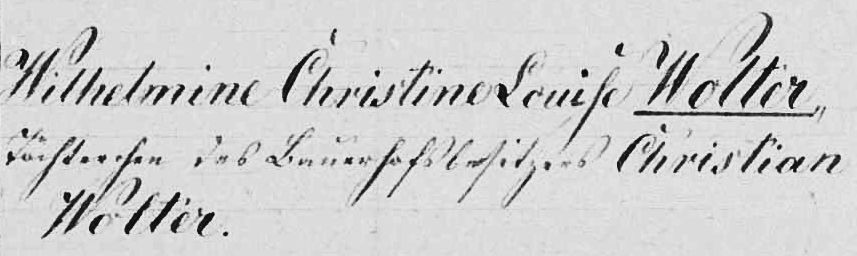 Wilhelmine Christine Louise Wolter,
Töchterchen des Bauerhofsbesitzers Christian
Wolter.